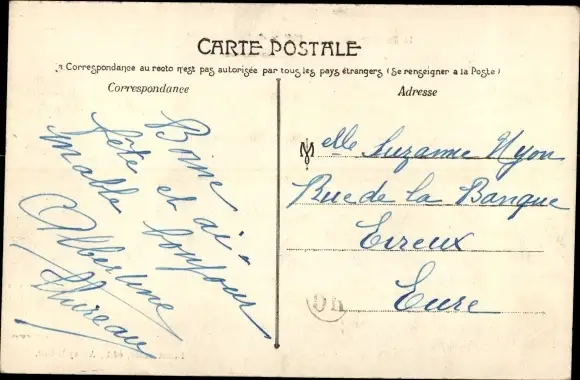 CARTE POSTALE
La Correspondance au recto n'est pas autorisée par tous les pays étrangers (Se renseigner a la Poste)
Correspondance
Adresse
Bonne
fête et ai-
mable bonjour
Albertine
Melle Suzanne Nyon
Rue de la Banque
Evreux
Eure